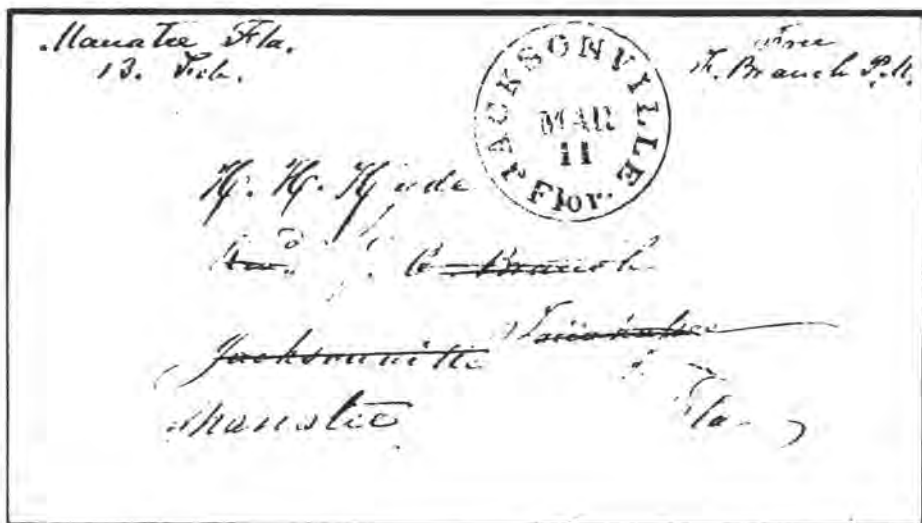 Manatee Fla.
13. Feb.
JACKSONVILLE
MAR
11
Flor.
Free
F. Branch P.M.
H. H. Hyde
Branch
Jacksonville
Manatee Fla.